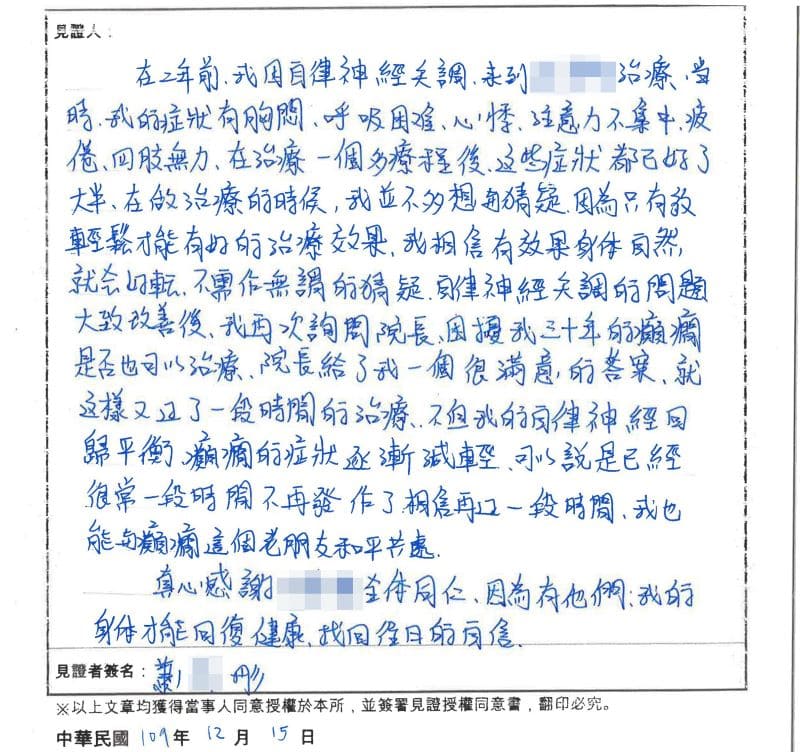 見證人:
在二年前,我因自律神經失調,來到治療,當
時,我的症狀有胸悶、呼吸困难、心悸、注意力不集中、疲
倦、四肢無力、在治療一個多療程後、這些症狀都已好了
大半、在做治療的時候,我並不多想與猜疑.因為只有放
輕鬆才能有好的治療效果、我相信有效果身体自然,
就会好転、不需作無謂的猜疑.自律神經失調的問題
大致改善後、我再次詢問院長、困擾我三十年的癲癇
是否也可以治療、院長給了我一個很滿意,的答案、就
這樣又过了一段時間的治療、不但我的自律神、經回
歸平衡、癲癇的症狀逐漸減輕、可以說是已經
很常一段時間不再發作了相信再过一段時間、我也
能与癲癇這個老朋友和平共處.
真心感謝全体同仁、因為有他們、我的
身体才能回復健康、找回往日的自信.
見證者簽名:蕭 彤
※以上文章均獲得當事人同意授權於本所,並簽署見證授權同意書,翻印必究。
中華民國 109年 12 月 15 日